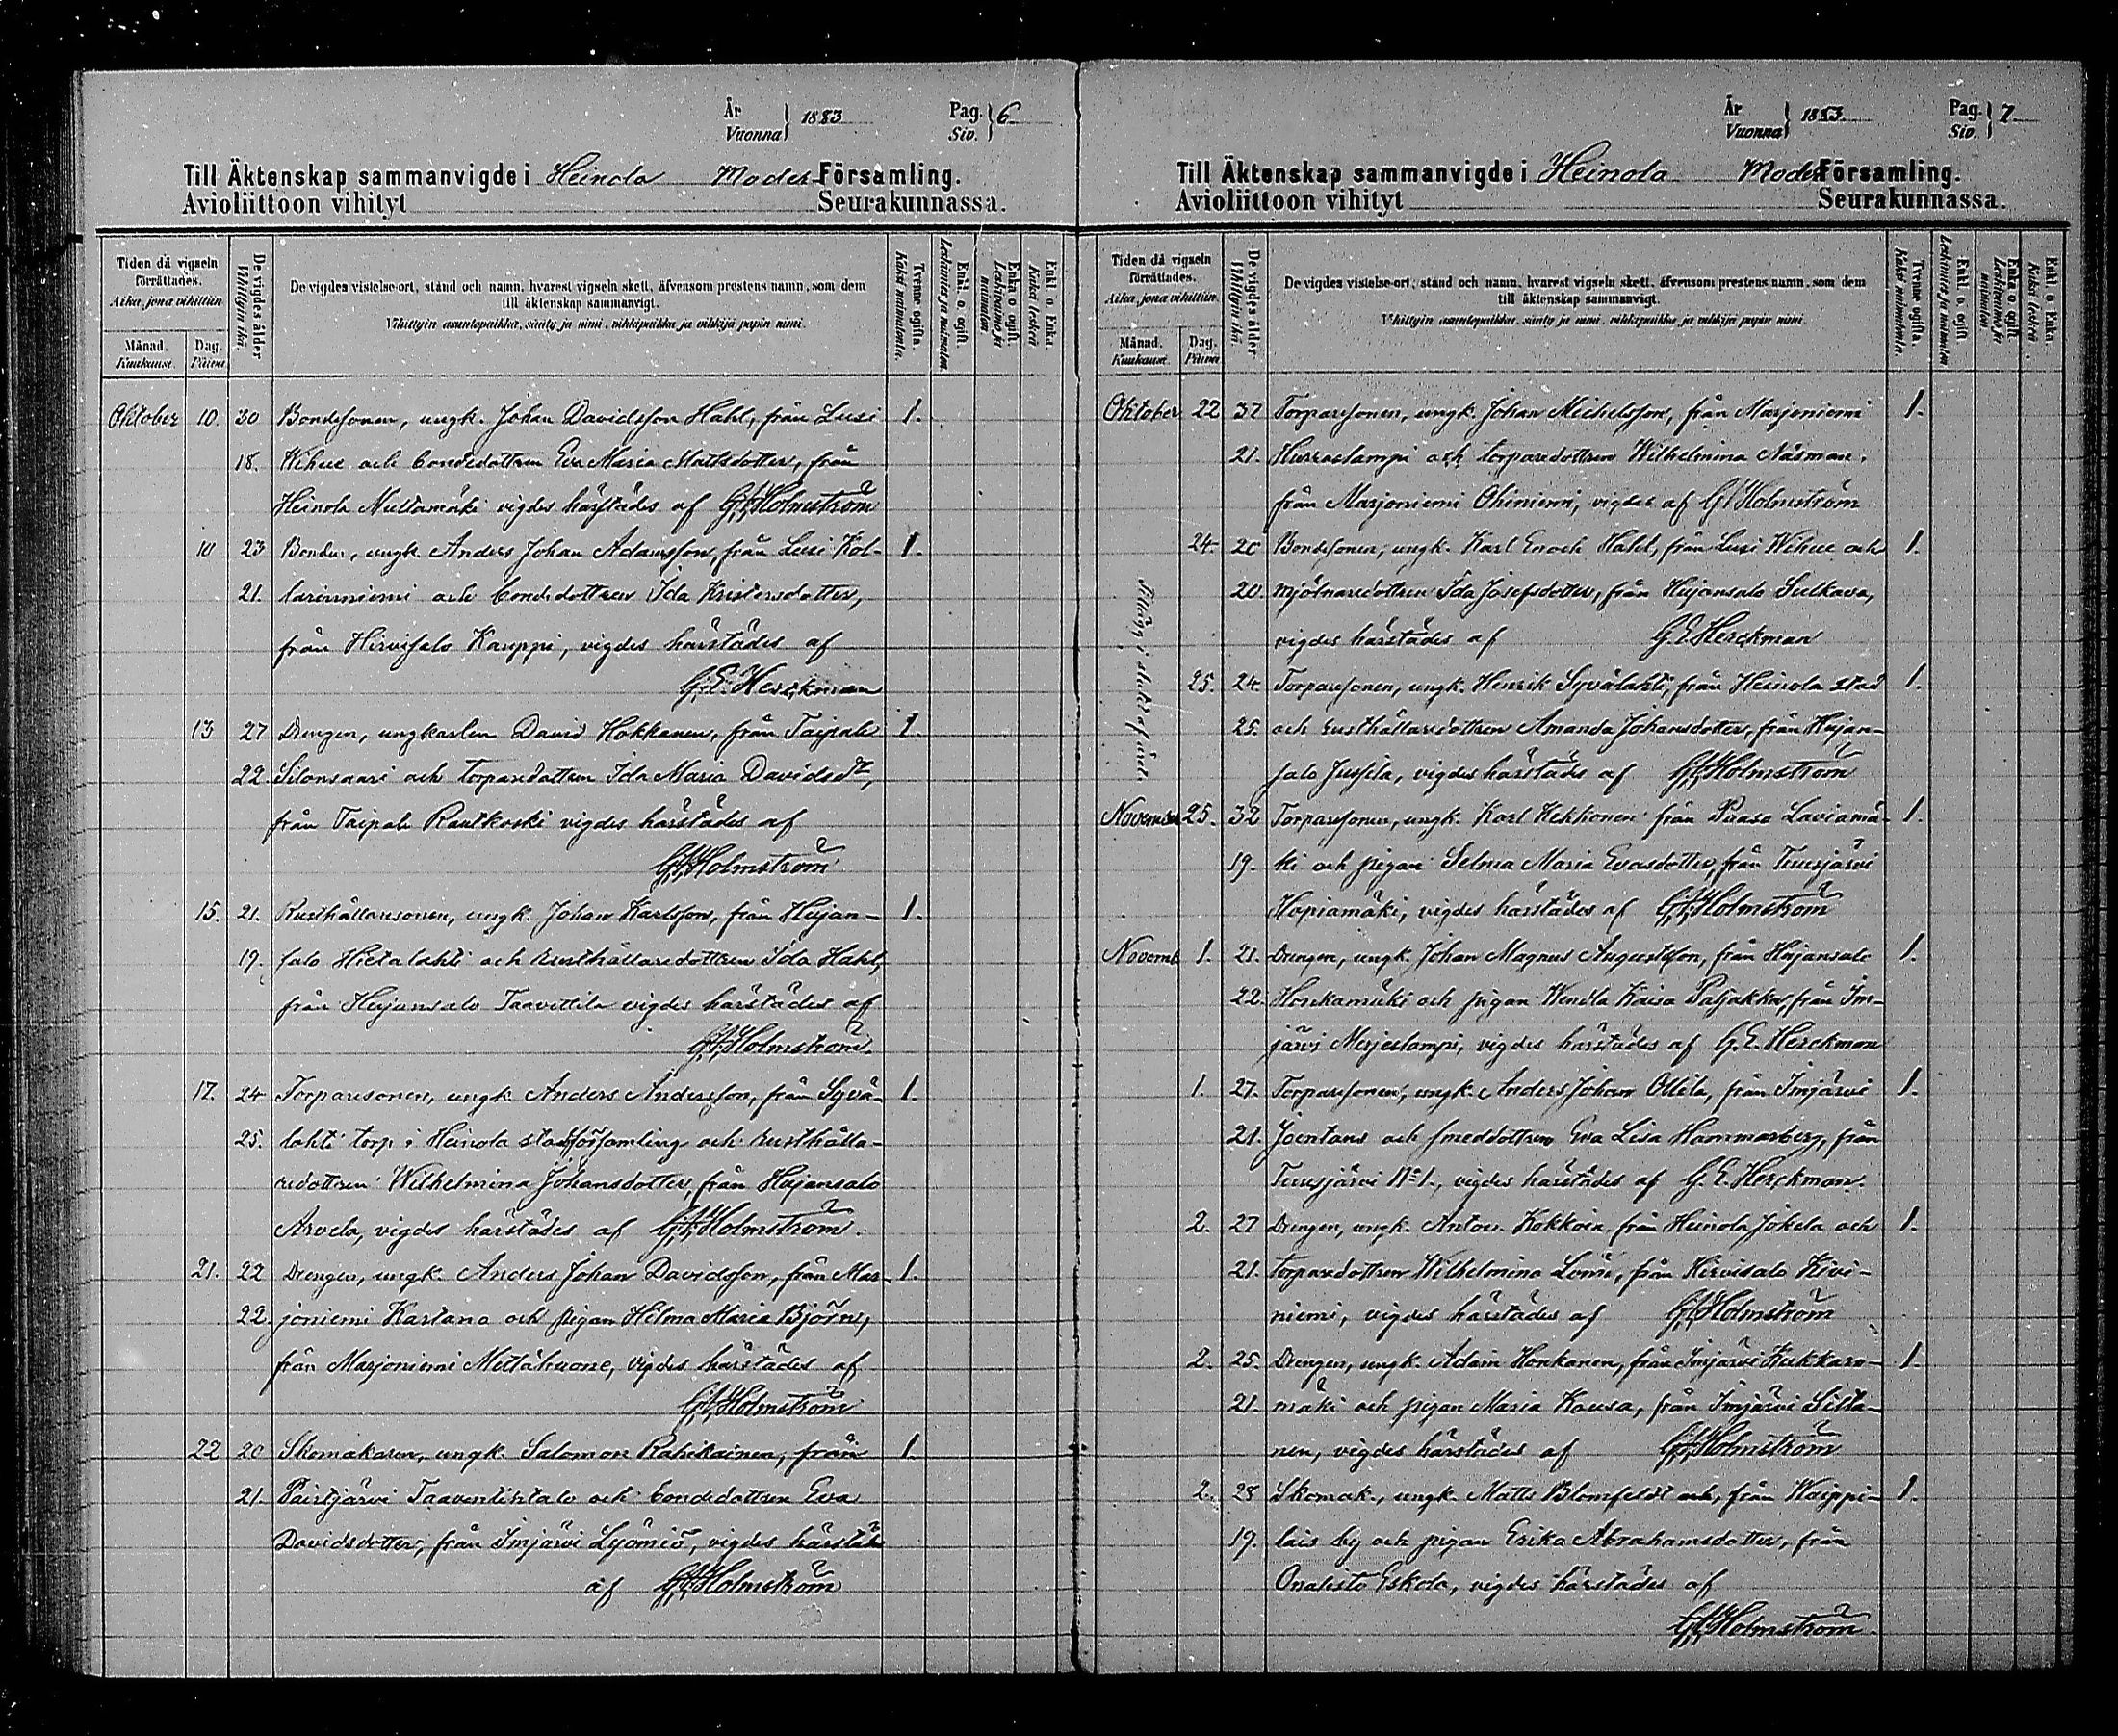 År
Vuonna } 1883
Pag.
Siv. } 6
Till Äktenskap sammanvigde i Heinola Moder Församling.
Avioliittoon vihityt Seurakunnassa.
Tiden då vigseln förrättades.
Aika, jona vihittiin.
Månad.
Kuukausi.
Dag.
Päivä.
De vigdes ålder
Vihittyin ikä.
De vigdes vistelse-ort, stånd och namn, hvarest vigseln skett, äfvensom prestens namn, som dem
till äktenskap sammanvigt.
Vihittyin asuntopaikka, sääty ja nimi, vihkipaikka ja vihkijä papin nimi.
Tvenne ogifta.
Kaksi naimatonta.
Enkl. o. ogift.
Leskimies ja naimaton.
Enka o. ogift.
Leskivaimo ja naimaton
Enkl. o. Enka.
Kaksi leskeä
Oktober 10. 30 Bondesonen, ungk. Johan Davidsson Hahl, från Lusi 1.
18. Wihue och bondedottren Eva Maria Mattsdotter, från
Heinola Multamäki vigdes härstädes af Holmström
10 23 Bonden, ungk. Anders Johan Adamsson, från Lusi Kol- 1.
21. larinniemi och bondedottren Ida Kristersdotter,
från Hirvisalo Kauppi, vigdes härstädes af
G. E. Herckman
13 27 Drengen, ungkarlen David Hokkanen, från Taipale 1.
22. Silonsaari och torparedottren Ida Maria Davidsdr,
från Taipale Rautkoski vigdes härstädes af
Holmström
15. 21. Rusthållaresonen, ungk. Johan Karlsson, från Hujan- 1.
19. salo Hietalahti och rusthållaredottren Ida Hahl,
från Hujansalo Taavettila vigdes härstädes af
Holmström.
17. 24 Torparesonen, ungk. Anders Andersson, från Syvä- 1.
25. lahti torp i Heinola stadsförsamling och rusthålla-
redottren Wilhelmina Johansdotter, från Hujansalo
Arvela, vigdes härstädes af Holmström.
21. 22 Drengen, ungk. Anders Johan Davidsson, från Mar- 1.
22. joniemi Kartano och pigan Hilma Maria Björn,
från Marjoniemi vigdes härstädes af
Holmström
22 20 Skomakaren, ungk. Salomon Rahikainen, från 1.
21. Paistjärvi och bondedottren Eva
Davidsdotter, från Imjärvi Lyömiö, vigdes härstädes
af Holmström
År
Vuonna } 1883
Pag.
Siv. } 7
Till Äktenskap sammanvigde i Heinola Moder Församling.
Avioliittoon vihityt Seurakunnassa.
Tiden då vigseln förrättades.
Aika, jona vihittiin.
Månad.
Kuukausi.
Dag.
Päivä
De vigdes ålder
Vihittyin ikä.
De vigdes vistelse-ort, stånd och namn, hvarest vigseln skett, äfvensom prestens namn, som dem
till äktenskap sammanvigt.
Vihittyin asuntopaikka, sääty ja nimi, vihkipaikka ja vihkijä papin nimi.
Tvenne ogifta.
Kaksi naimatonta
Enkl. o. ogift
Leskimies ja naimaton
Enka o. ogift.
Leskivaimo ja naimaton
Enkl. o. Enka.
Kaksi leskeä.
Oktober 22 37 Torparesonen, ungk. Johan Michelsson, från Marjoniemi 1.
21. Hurraslampi och torparedottren Wilhelmina Näsman,
från Marjoniemi Ohiniemi, vigdes af Holmström
24. 20 Bondesonen, ungk. Karl Enoch Hahl, från Lusi Wihue och 1.
20. mjölnaredottren Ida Josefsdotter, från Hujansalo Sulkava,
vigdes härstädes af G. E. Herckman
25. 24. Torparesonen, ungk. Henrik Syvälahti, från Heinola stad 1.
25. och rusthållaredottren Amanda Johansdotter, från Hujan-
salo Jussila, vigdes härstädes af Holmström
i slutet af året
November 25. 32 Torparesonen, ungk. Karl Hekkonen från Paaso Laviamä- 1.
19. ki och pigan Selma Maria Evasdotter, från Tuusjärvi
Hopiamäki, vigdes härstädes af Holmström
Novemb 1. 21. Drengen, ungk. Johan Magnus Augustsson, från Hujansalo 1.
22. och pigan Wendla Kaisa Paljakka, från Im-
järvi Merjeslampi, vigdes härstädes af G. E. Herckman
1. 27. Torparesonen, ungk. Anders Johan Ollila, från Imjärvi 1.
21. Joentaus och smeddottren Eva Lisa Hammarberg, från
Tuusjärvi No 1., vigdes härstädes af G. E. Herckman.
2. 27 Drengen, ungk. Anton Kokkoin från Heinola Jokela och 1.
21. torparedottren Wilhelmina, från Hirvisalo Kivi-
niemi, vigdes härstädes af Holmström
2. 25. Drengen, ungk. Adam Honkanen, från Imjärvi Kukkaro- 1.
21. mäki och pigan Maria Kousa, från Imjärvi Silta-
nen, vigdes härstädes af Holmström
2. 28 Skomak., ungk. Matts Blomfeldt, från Waippi- 1.
19. lais by och pigan Erika Abrahamsdotter, från
Onalisto Eskola, vigdes härstädes af
Holmström.